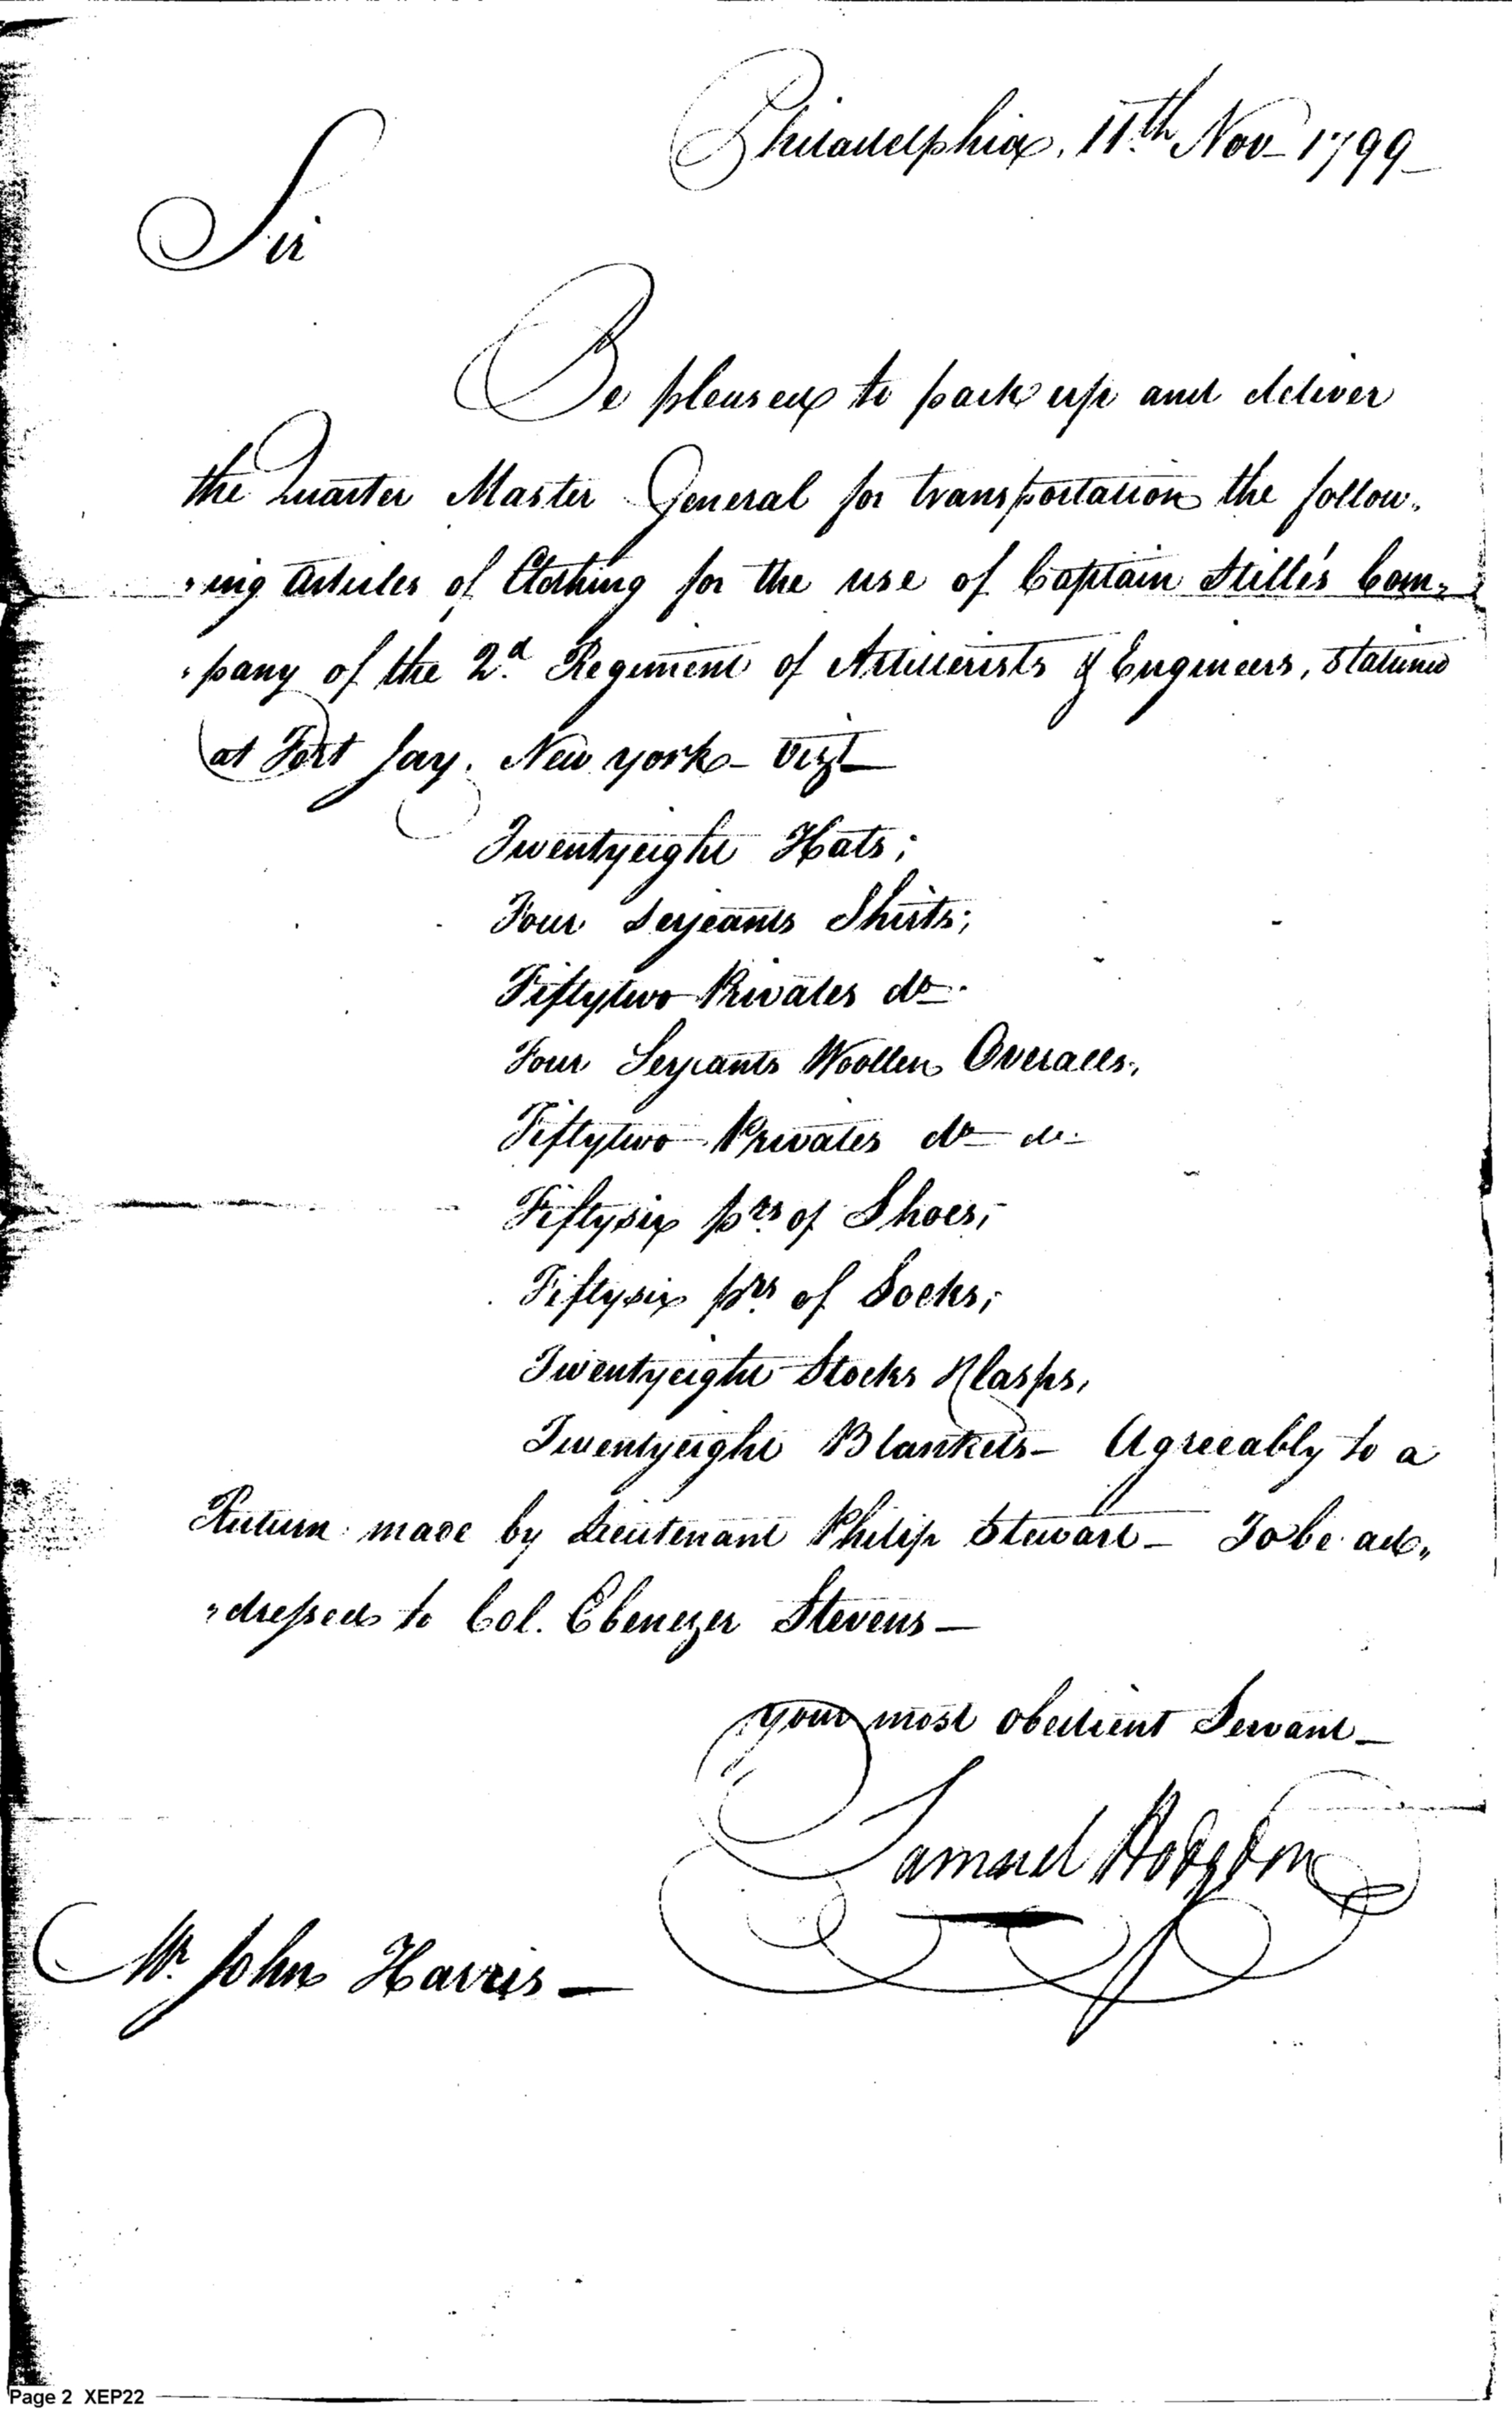 Philadelphia, 11th Nov 1799
Sir
Be pleased to pack up and deliver
the Quarter Master General for transportation the follow-
"ing articles of Clothing for the use of Captain Stille's Com-
"pany of the 2d Regiment of Artillerists & Engineers, stationed
at Fort Jay, New York - Vizt
Twentyeight Hats;
Four Serjeants Shirts;
Fiftytwo Privates do.
Four Serjeants Woollen Overalls,
Fiftytwo Privates do do
Fiftysix prs of Shoes;
Fiftysix prs of Socks;
Twentyeight Stocks & Clasps,
Twentyeight Blankets - Agreeably to a
Return made by Lieutenant Philip Stewart - To be ad"
"dressed to Col. Ebenezer Stevens -
your most obedient Servant -
Samuel Hodgdon
Mr. John Harris -
Page 2 XEP22